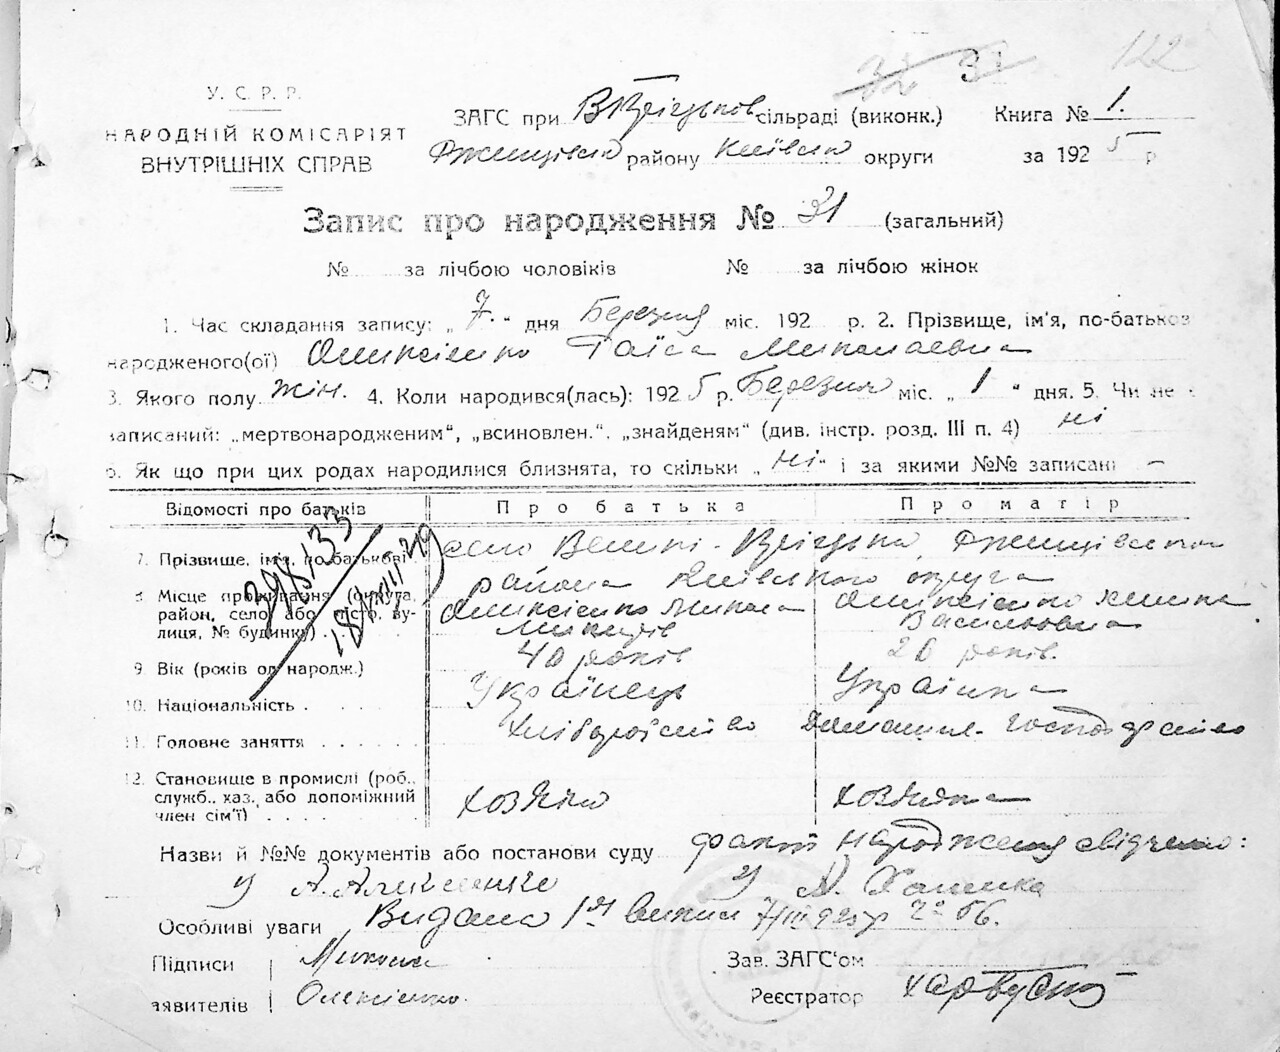 122
У. С. Р. Р.
НАРОДНІЙ КОМІСАРІЯТ
ВНУТРІШНІХ СПРАВ
ЗАГС при сільраді (виконк.) Книга № 1.
району Київськ округи за 1925 р
Запис про народження № 31 (загальний)
№ за лічбою чоловіків № за лічбою жінок
1. Час складання запису: „ 7. " дня Березня міс. 192 р. 2. Прізвище, ім'я, по-батьков
народженого(ої) Оликсієнко Таїса Миколаевна
3. Якого полу жін. 4. Коли народився(лась): 1925 р. Березня міс. „ 1 " дня. 5. Чи не
записаний: „мертвонародженим", „всиновлен.", „знайденям" (див. інстр. розд. III п. 4) ні
6. Як що при цих родах народилися близнята, то скільки „ ні " і за якими №№ записані —
Відомості про батьків Про батька Про матір
7. Прізвище, ім'я, по-батькові село Великі-
района Київського округа
8. Місце проживання (округа, район, село або місто, вулиця, № будинку) Оликсієнко Микола Оликсієнко
Васильовна
9. Вік (років од народж.) 40 років 20 років.
10. Національність . Українець Українка
11. Головне заняття . . . . . . Хліборобство Домашнє господарство
12. Становище в промислі (роб., служб., хаз., або допоміжний член сім'ї) . . . . . . хозяїн хозяйка
Назви й №№ документів або постанови суду факт народження свідчено:
у А. у
Особливі уваги Видано 1й випис
Підписи Микола Зав. ЗАГС'ом
заявителів Олексієнко. Реєстратор